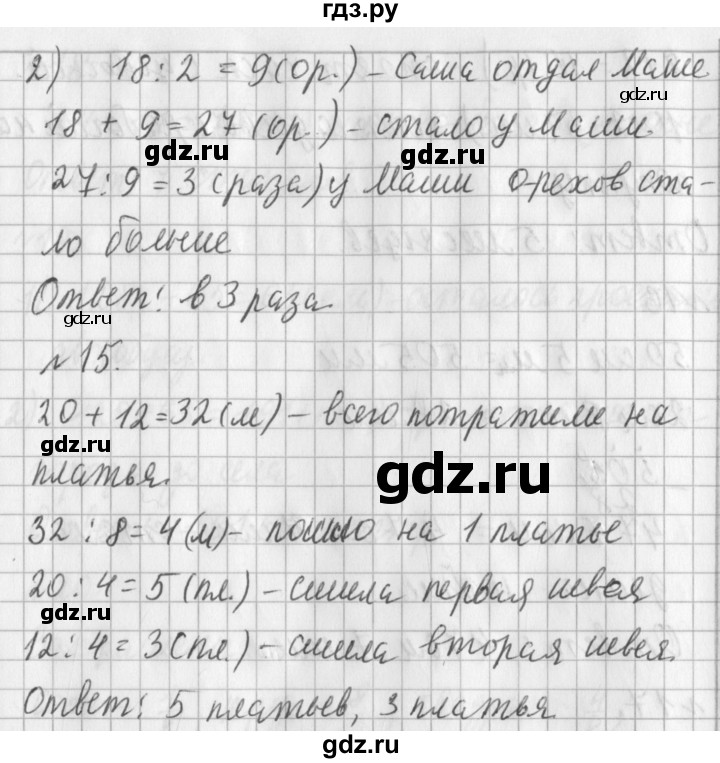 гдз.ру
2) 18 : 2 = 9 (ор.) – Саша отдал Маше
gdz.ru
18 + 9 = 27 (ор.) – стало у Маши.
gdz.ru
gdz.ru
27 : 9 = 3 (раза) у Маши орехов ста-
ло больше
Ответ: в 3 раза.
gdz.ru
№ 15.
20 + 12 = 32 (м) – всего потратили на
gdz.ru
платья.
gdz.ru
32 : 8 = 4 (м) – пошло на 1 платье
20 : 4 = 5 (пл.) – сшила первая швея
gdz.ru
12 : 4 = 3 (пл.) – сшила вторая швея.
Ответ: 5 платьев, 3 платья.
gdz.ru